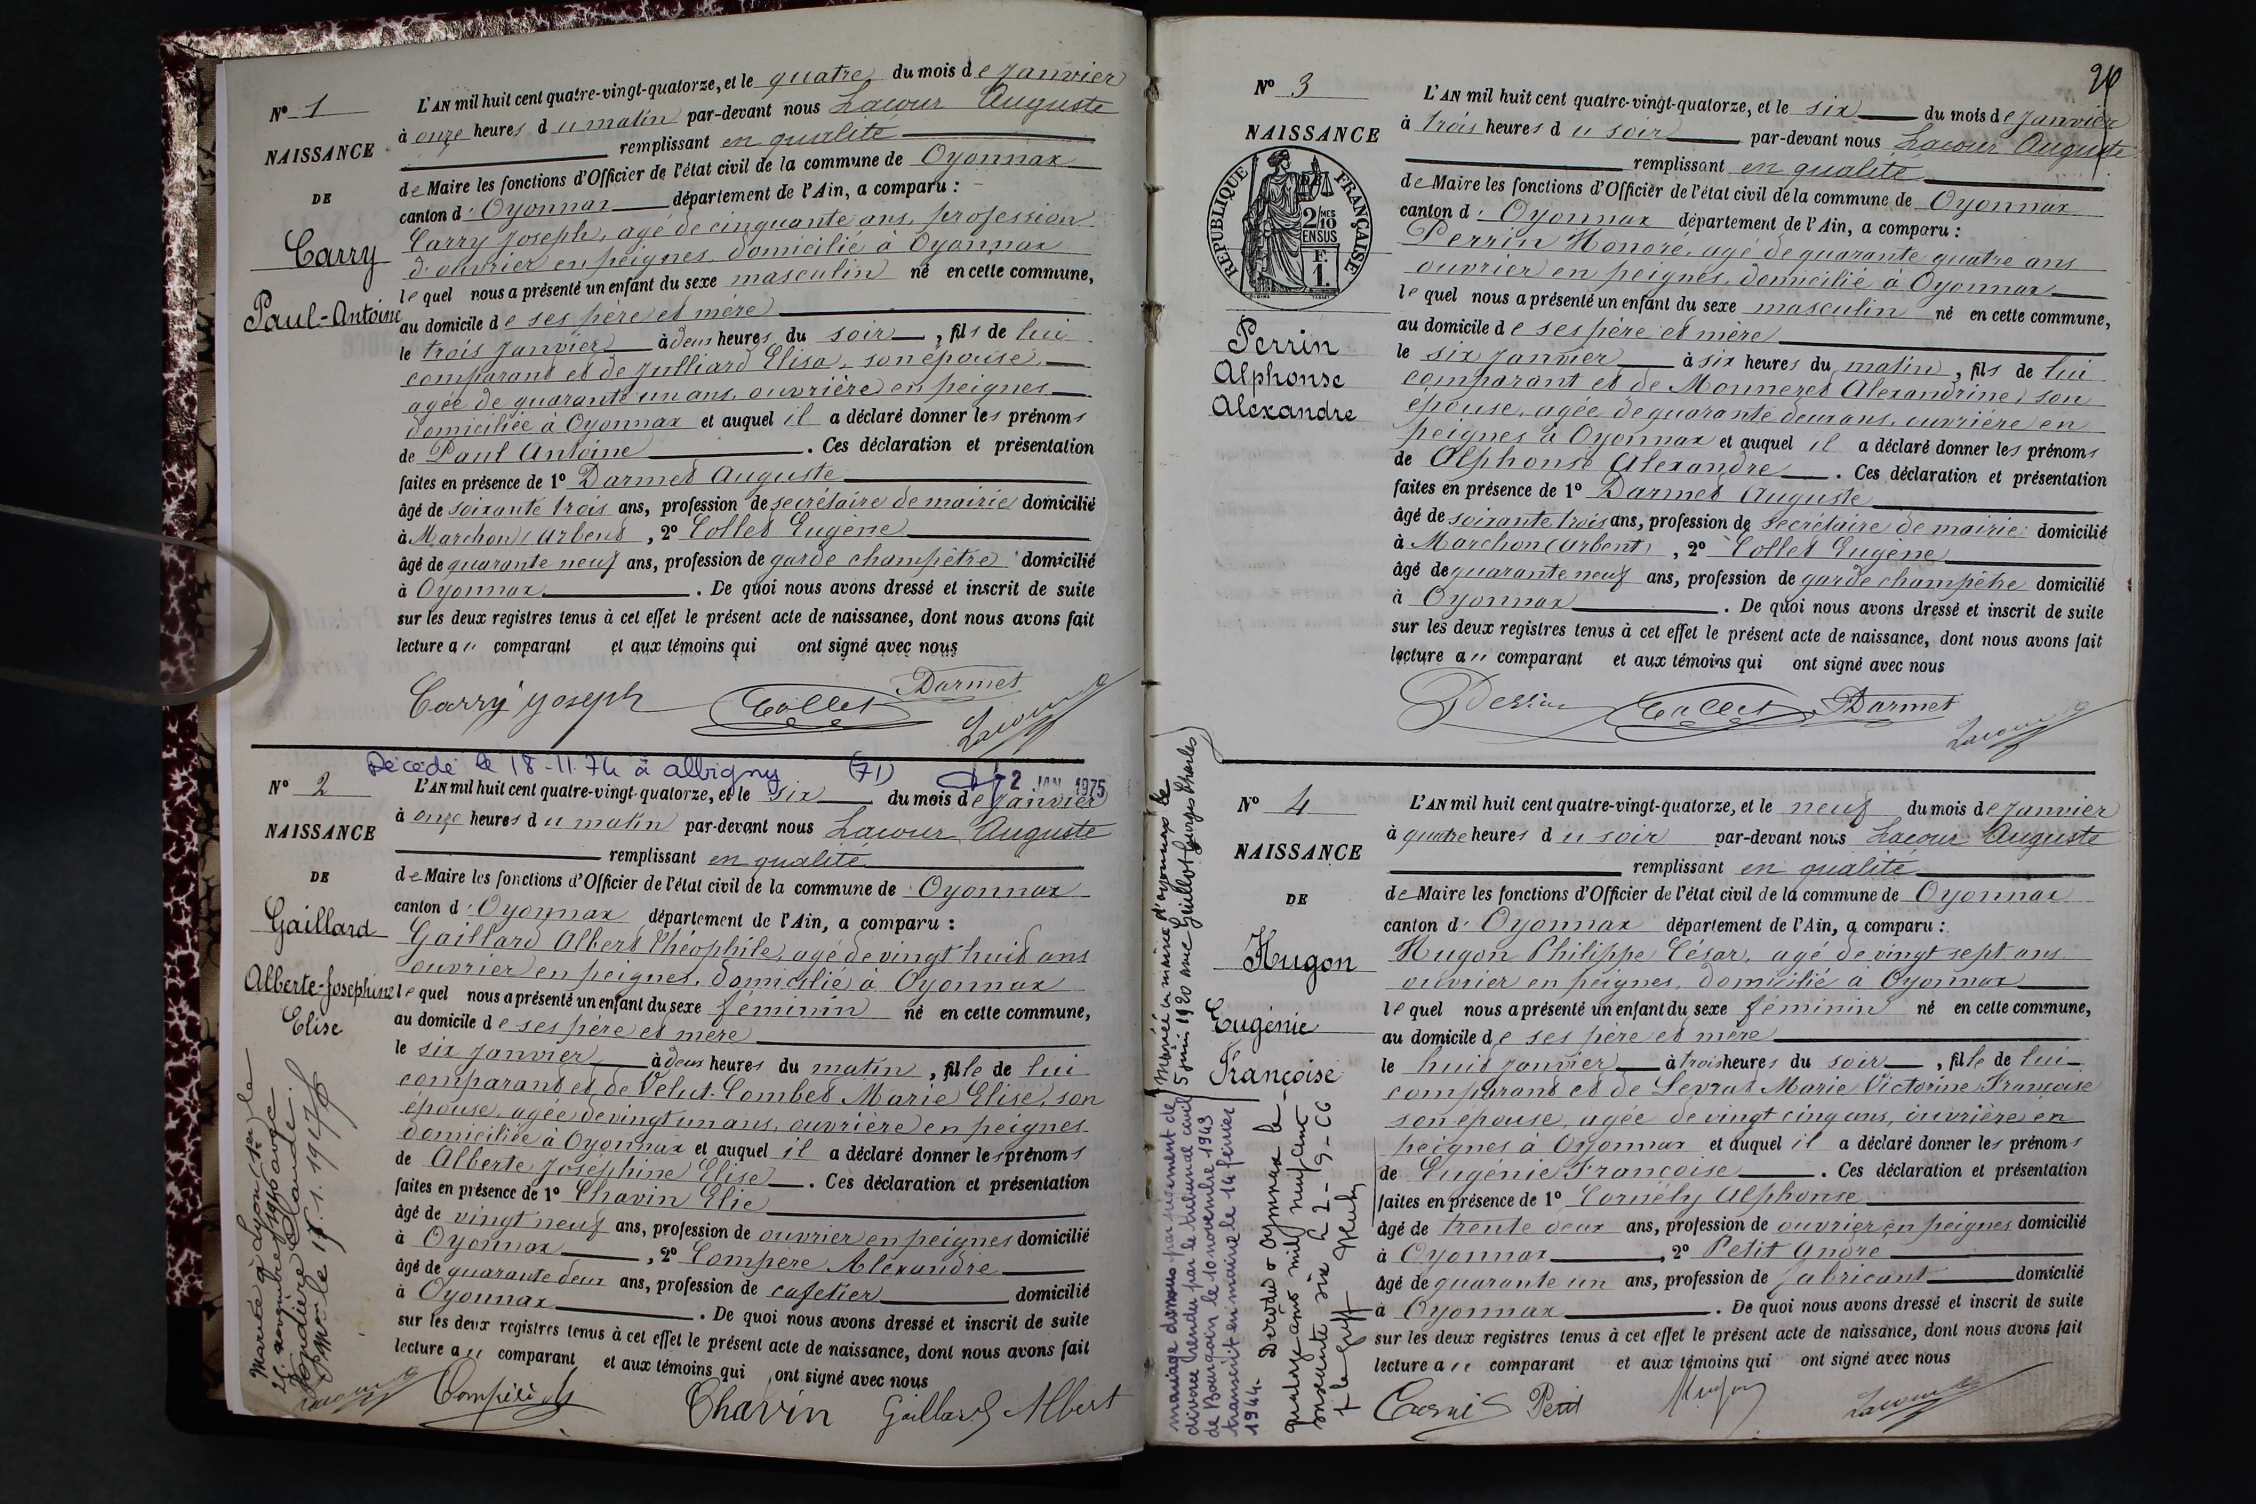 N° 1
NAISSANCE
DE
Carry
Paul-Antoine
L'AN mil huit cent quatre-vingt-quatorze, et le quatre du mois de Janvier
à onze heures du matin par-devant nous Lacour Auguste
remplissant en qualité
de Maire les fonctions d'Officier de l'état civil de la commune de Oyonnax
canton d'Oyonnax département de l'Ain, a comparu :
Carry Joseph, agé de cinquante ans, profession
d'ouvrier en peignes domicilié à Oyonnax
lequel nous a présenté un enfant du sexe masculin né en cette commune,
au domicile de ses père et mère
le trois Janvier à deux heures du soir, fils de lui
comparant et de Julliard Elisa, son épouse
agée de quarante un ans, ouvrière en peignes
domiciliée à Oyonnax et auquel il a déclaré donner les prénoms
de Paul Antoine. Ces déclaration et présentation
faites en présence de 1° Darmet Auguste
âgé de soixante trois ans, profession de secrétaire de mairie domicilié
à Marchon (Arbent, 2° Collet Eugène
âgé de quarante neuf ans, profession de garde champêtre domicilié
à Oyonnax. De quoi nous avons dressé et inscrit de suite
sur les deux registres tenus à cet effet le présent acte de naissance, dont nous avons fait
lecture au comparant et aux témoins qui ont signé avec nous
Carry Joseph Collet Darmet Lacour
Décédé le 18-11-74 à Albigny (71)
2 JAN 1975
N° 2
NAISSANCE
DE
Gaillard
Alberte-Josephine
Elise
L'AN mil huit cent quatre-vingt-quatorze, et le six du mois de Janvier
à onze heures du matin par-devant nous Lacour Auguste
remplissant en qualité
de Maire les fonctions d'Officier de l'état civil de la commune de Oyonnax
canton d'Oyonnax département de l'Ain, a comparu :
Gaillard Albert Théophile, agé de vingt huit ans
ouvrier en peignes, domicilié à Oyonnax
lequel nous a présenté un enfant du sexe féminin né en cette commune,
au domicile de ses père et mère
le six Janvier à deux heures du matin, fille de lui
comparant et de Velut-Combet Marie Elise, son
épouse, agée de vingt un ans, ouvrière en peignes
domiciliée à Oyonnax et auquel il a déclaré donner les prénoms
de Alberte Joséphine Elise. Ces déclaration et présentation
faites en présence de 1° Chavin Elie
âgé de vingt neuf ans, profession de ouvrier en peignes domicilié
à Oyonnax, 2° Compère Alexandre
âgé de quarante deux ans, profession de cafetier domicilié
à Oyonnax. De quoi nous avons dressé et inscrit de suite
sur les deux registres tenus à cet effet le présent acte de naissance, dont nous avons fait
lecture au comparant et aux témoins qui ont signé avec nous
Mariée à Lyon le
novembre avec
Claude
Lacour Compère Chavin Gaillard Albert
20
N° 3
NAISSANCE
REPUBLIQUE FRANÇAISE
2/10
MES
EN SUS
F.
1.
Perrin
Alphonse
Alexandre
L'AN mil huit cent quatre-vingt-quatorze, et le six du mois de Janvier
à trois heures du soir par-devant nous Lacour Auguste
remplissant en qualité
de Maire les fonctions d'Officier de l'état civil de la commune de Oyonnax
canton d'Oyonnax département de l'Ain, a comparu :
Perrin Honoré, agé de quarante quatre ans
ouvrier en peignes, domicilié à Oyonnax
lequel nous a présenté un enfant du sexe masculin né en cette commune,
au domicile de ses père et mère
le six Janvier à six heures du matin, fils de lui
comparant et de Monneret Alexandrine, son
épouse, agée de quarante deux ans, ouvrière en
peignes à Oyonnax et auquel il a déclaré donner les prénoms
de Alphonse Alexandre. Ces déclaration et présentation
faites en présence de 1° Darmet Auguste
âgé de soixante trois ans, profession de secrétaire de mairie domicilié
à Marchon (Arbent), 2° Collet Eugène
âgé de quarante neuf ans, profession de garde champêtre domicilié
à Oyonnax. De quoi nous avons dressé et inscrit de suite
sur les deux registres tenus à cet effet le présent acte de naissance, dont nous avons fait
lecture au comparant et aux témoins qui ont signé avec nous
Perrin Collet Darmet Lacour
N° 4
NAISSANCE
DE
Hugon
Eugénie
Françoise
L'AN mil huit cent quatre-vingt-quatorze, et le neuf du mois de Janvier
à quatre heures du soir par-devant nous Lacour Auguste
remplissant en qualité
de Maire les fonctions d'Officier de l'état civil de la commune de Oyonnax
canton d'Oyonnax département de l'Ain, a comparu :
Hugon Philippe César, agé de vingt sept ans
ouvrier en peignes, domicilié à Oyonnax
lequel nous a présenté un enfant du sexe féminin né en cette commune,
au domicile de ses père et mère
le huit Janvier à trois heures du soir, fille de lui
comparant et de Levrat Marie Victorine Françoise
son épouse, agée de vingt cinq ans, ouvrière en
peignes à Oyonnax et auquel il a déclaré donner les prénoms
de Eugénie Françoise. Ces déclaration et présentation
faites en présence de 1° Cornély Alphonse
âgé de trente deux ans, profession de ouvrier en peignes domicilié
à Oyonnax, 2° Petit André
âgé de quarante un ans, profession de fabricant domicilié
à Oyonnax. De quoi nous avons dressé et inscrit de suite
sur les deux registres tenus à cet effet le présent acte de naissance, dont nous avons fait
lecture au comparant et aux témoins qui ont signé avec nous
Mariée en mairie d'Oyonnax le
5 juin 1920 avec Guillot Georges Charles
mariage dissous par jugement de
divorce rendu par le tribunal civil
de Bourgoin le 10 novembre 1943
transcrit en mairie le 14 février
1944.
Décédée à Oyonnax le
quatorze août mil neuf cent
soixante six 2-9-66
Petit Hugon Lacour